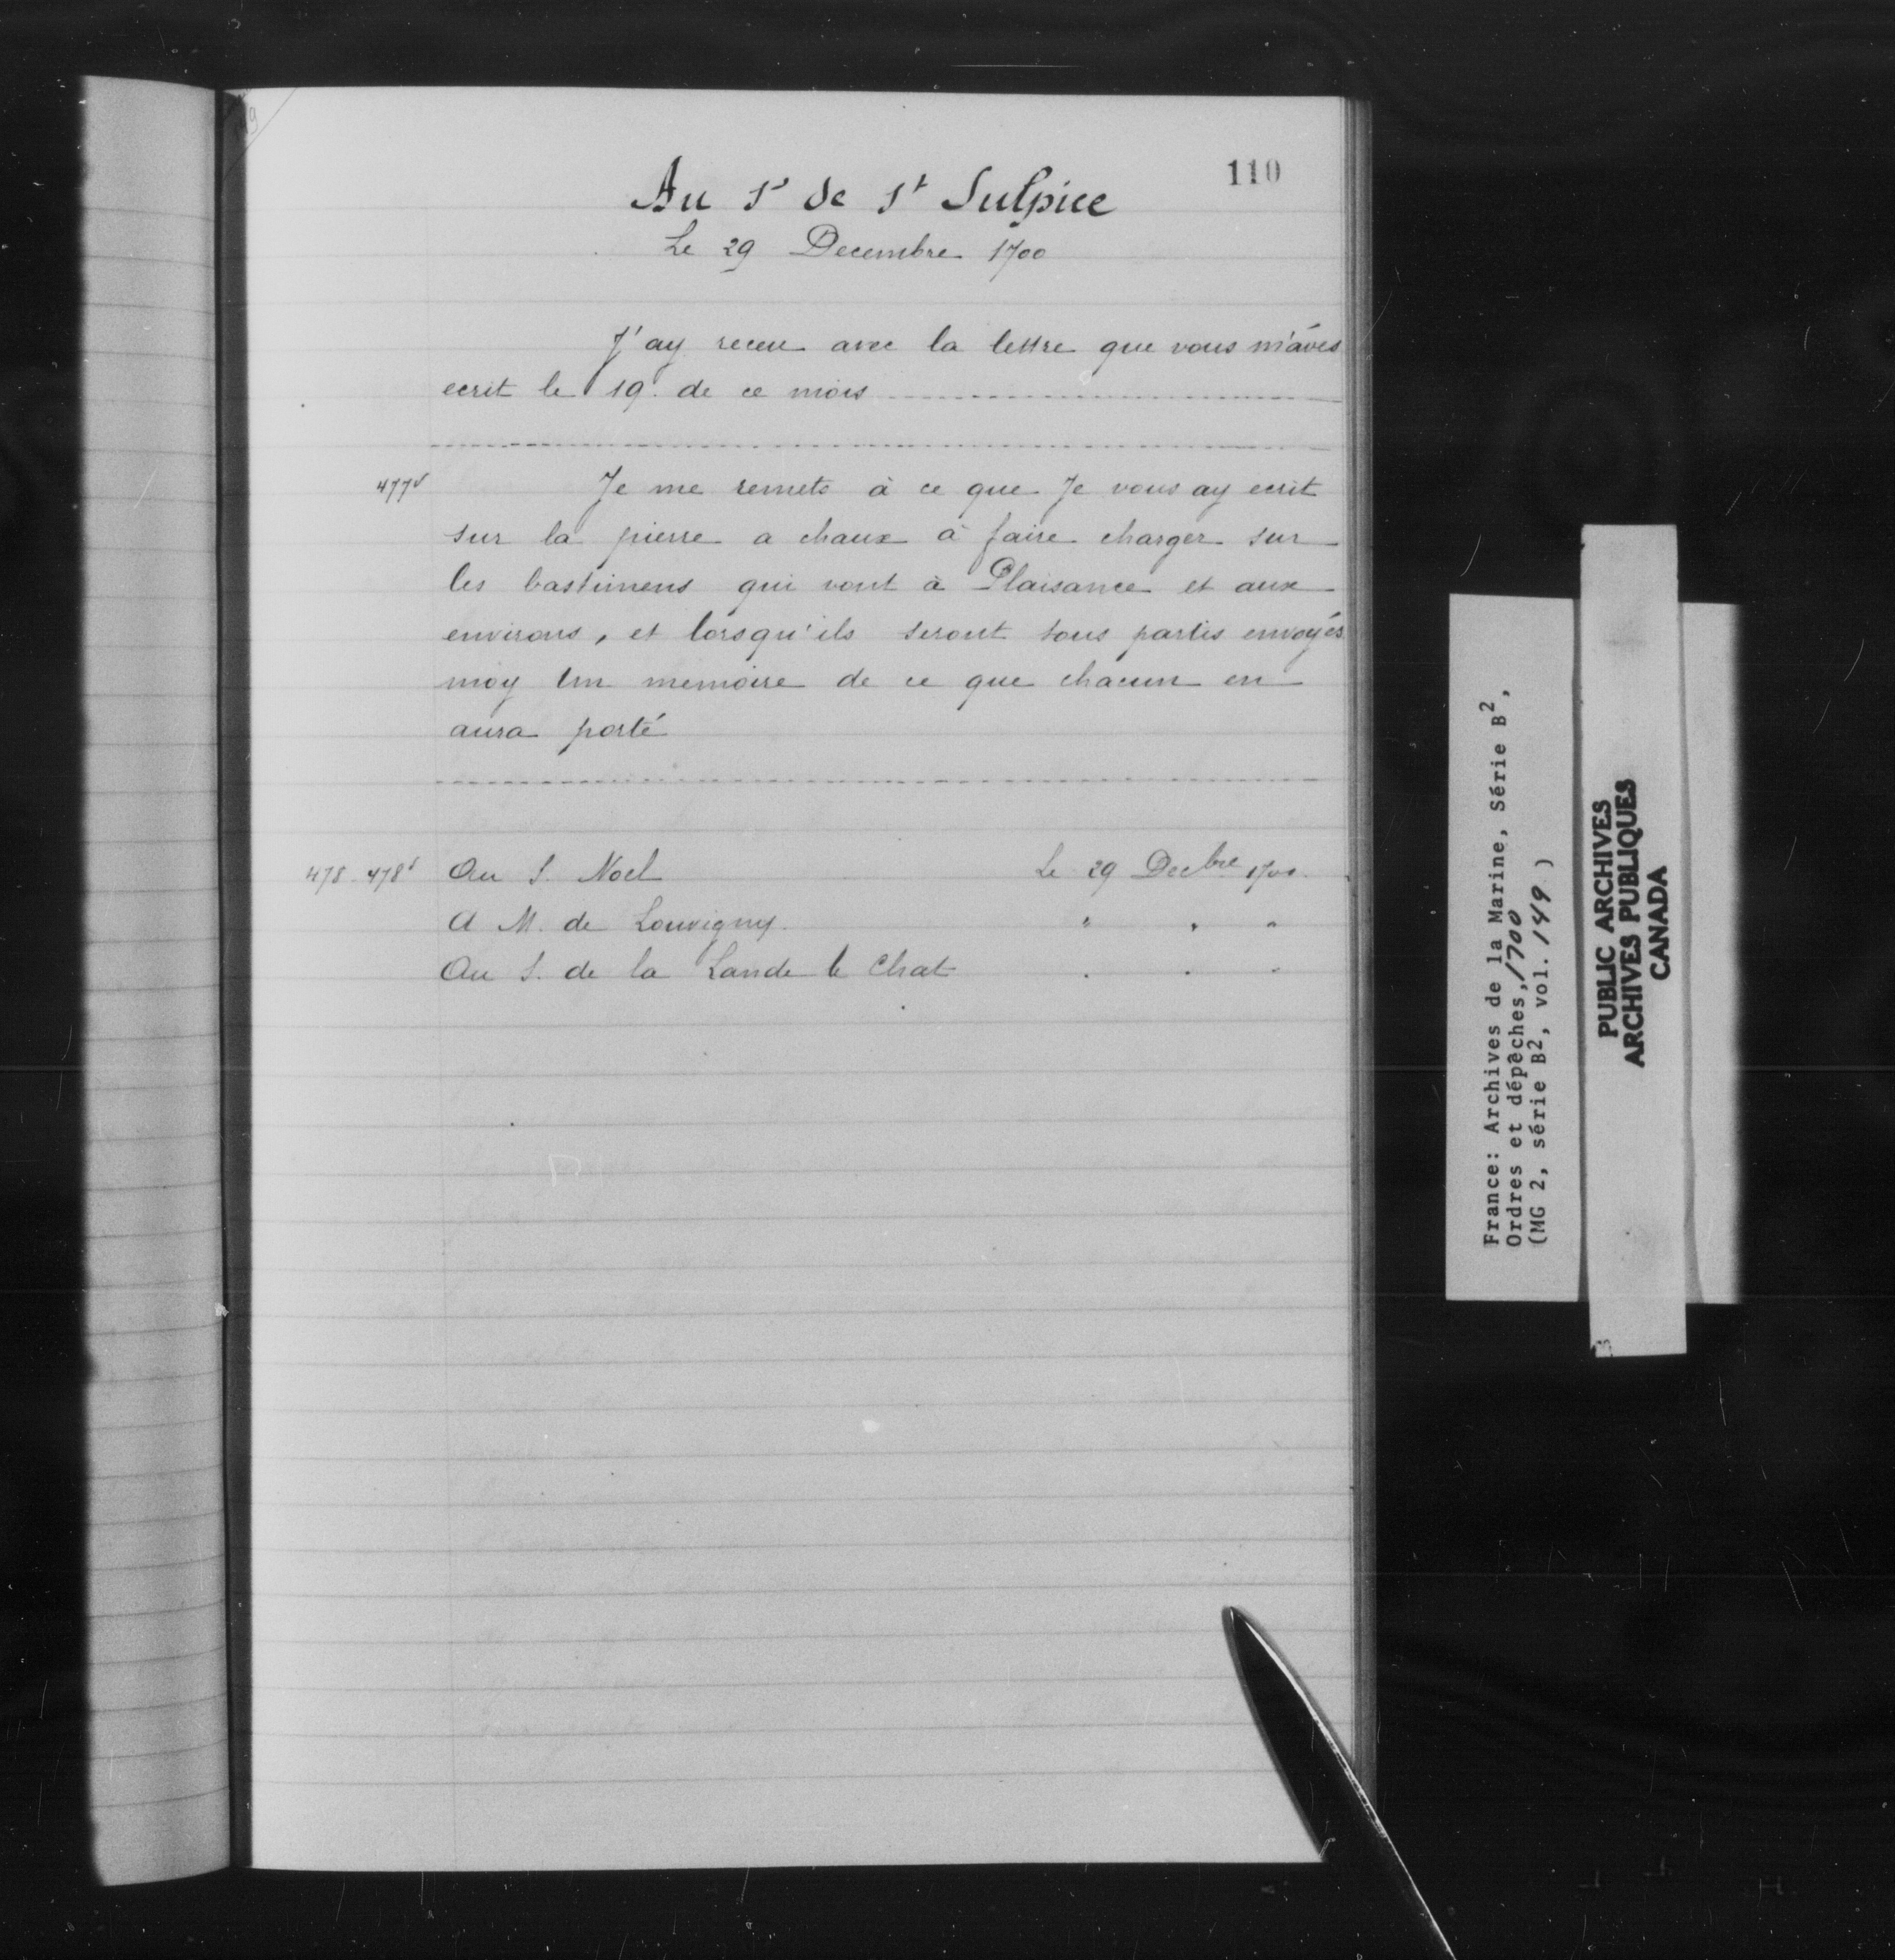 110
Au Sr de St Sulpice
Le 29 Decembre 1700
J'ay receu avec la lettre que vous m'avés
ecrit le 19. de ce mois
477v Je me remets à ce que Je vous ay ecrit
sur la pierre a chaux à faire charger sur
les bastimens qui vont à Plaisance et aux
environs, et lorsqu'ils seront tous partis envoyés
moy Un memoire de ce que chacun en
aura porté
478-478v Au S. Noel Le 29 Decbre 1700.
A M. de Louvigny. " " "
Au S. de la Lande le Chat " " "
France: Archives de la Marine, Série B2,
Ordres et dépêches, 1700
(MG 2, série B2, vol. 149)
PUBLIC ARCHIVES
ARCHIVES PUBLIQUES
CANADA